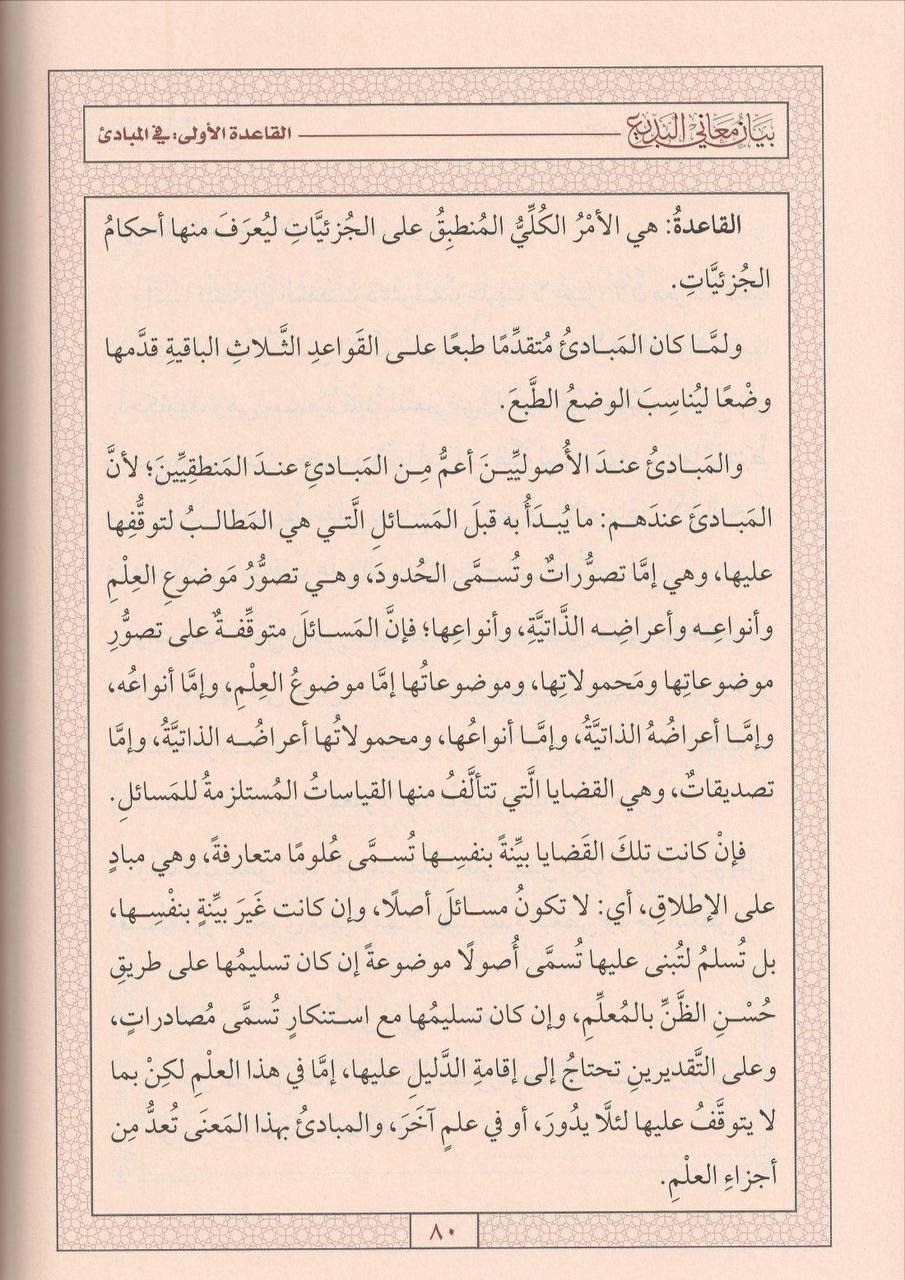 بيان معاني البديع
القاعدة الأولى: في المبادئ
القاعدةُ: هي الأمْرُ الكُلِّيُّ المُنطبِقُ على الجُزئيَّاتِ ليُعرَفَ منها أحكامُ
الجُزئيَّاتِ.
ولمَّا كان المَبادئُ مُتقدِّمًا طبعًا على القَواعدِ الثَّلاثِ الباقيةِ قدَّمها
وضْعًا ليُناسِبَ الوضعُ الطَّبعَ.
والمَبادئُ عندَ الأُصوليِّينَ أعمُّ مِن المَبادئِ عندَ المَنطقِيِّينَ؛ لأنَّ
المَبادئَ عندَهم: ما يُبدَأُ به قبلَ المَسائلِ الَّتي هي المَطالبُ لتوقُّفِها
عليها، وهي إمَّا تصوُّراتٌ وتُسمَّى الحُدودَ، وهي تصوُّرُ مَوضوعِ العِلْمِ
وأنواعِه وأعراضِه الذَّاتيَّةِ، وأنواعِها؛ فإنَّ المَسائلَ متوقِّفةٌ على تصوُّرِ
موضوعاتِها ومَحمولاتِها، وموضوعاتُها إمَّا موضوعُ العِلْمِ، وإمَّا أنواعُه،
وإمَّا أعراضُهُ الذاتيَّةُ، وإمَّا أنواعُها، ومحمولاتُها أعراضُه الذاتيَّةُ، وإمَّا
تصديقاتٌ، وهي القضايا الَّتي تتألَّفُ منها القياساتُ المُستلزمةُ للمَسائلِ.
فإنْ كانت تلكَ القَضايا بيِّنةً بنفسِها تُسمَّى عُلومًا متعارفةً، وهي مبادٍ
على الإطلاقِ، أي: لا تكونُ مسائلَ أصلًا، وإن كانت غَيرَ بيِّنةٍ بنفْسِها،
بل تُسلمُ لتُبنى عليها تُسمَّى أُصولًا موضوعةً إن كان تسليمُها على طريقِ
حُسْنِ الظَّنِّ بالمُعلِّمِ، وإن كان تسليمُها مع استنكارٍ تُسمَّى مُصادراتٍ،
وعلى التَّقديرينِ تحتاجُ إلى إقامةِ الدَّليلِ عليها، إمَّا في هذا العلْمِ لكِنْ بما
لا يتوقَّفُ عليها لئلَّا يدُورَ، أو في علمٍ آخَرَ، والمبادئُ بهذا المَعنَى تُعدُّ مِن
أجزاءِ العلْمِ.
٨٠